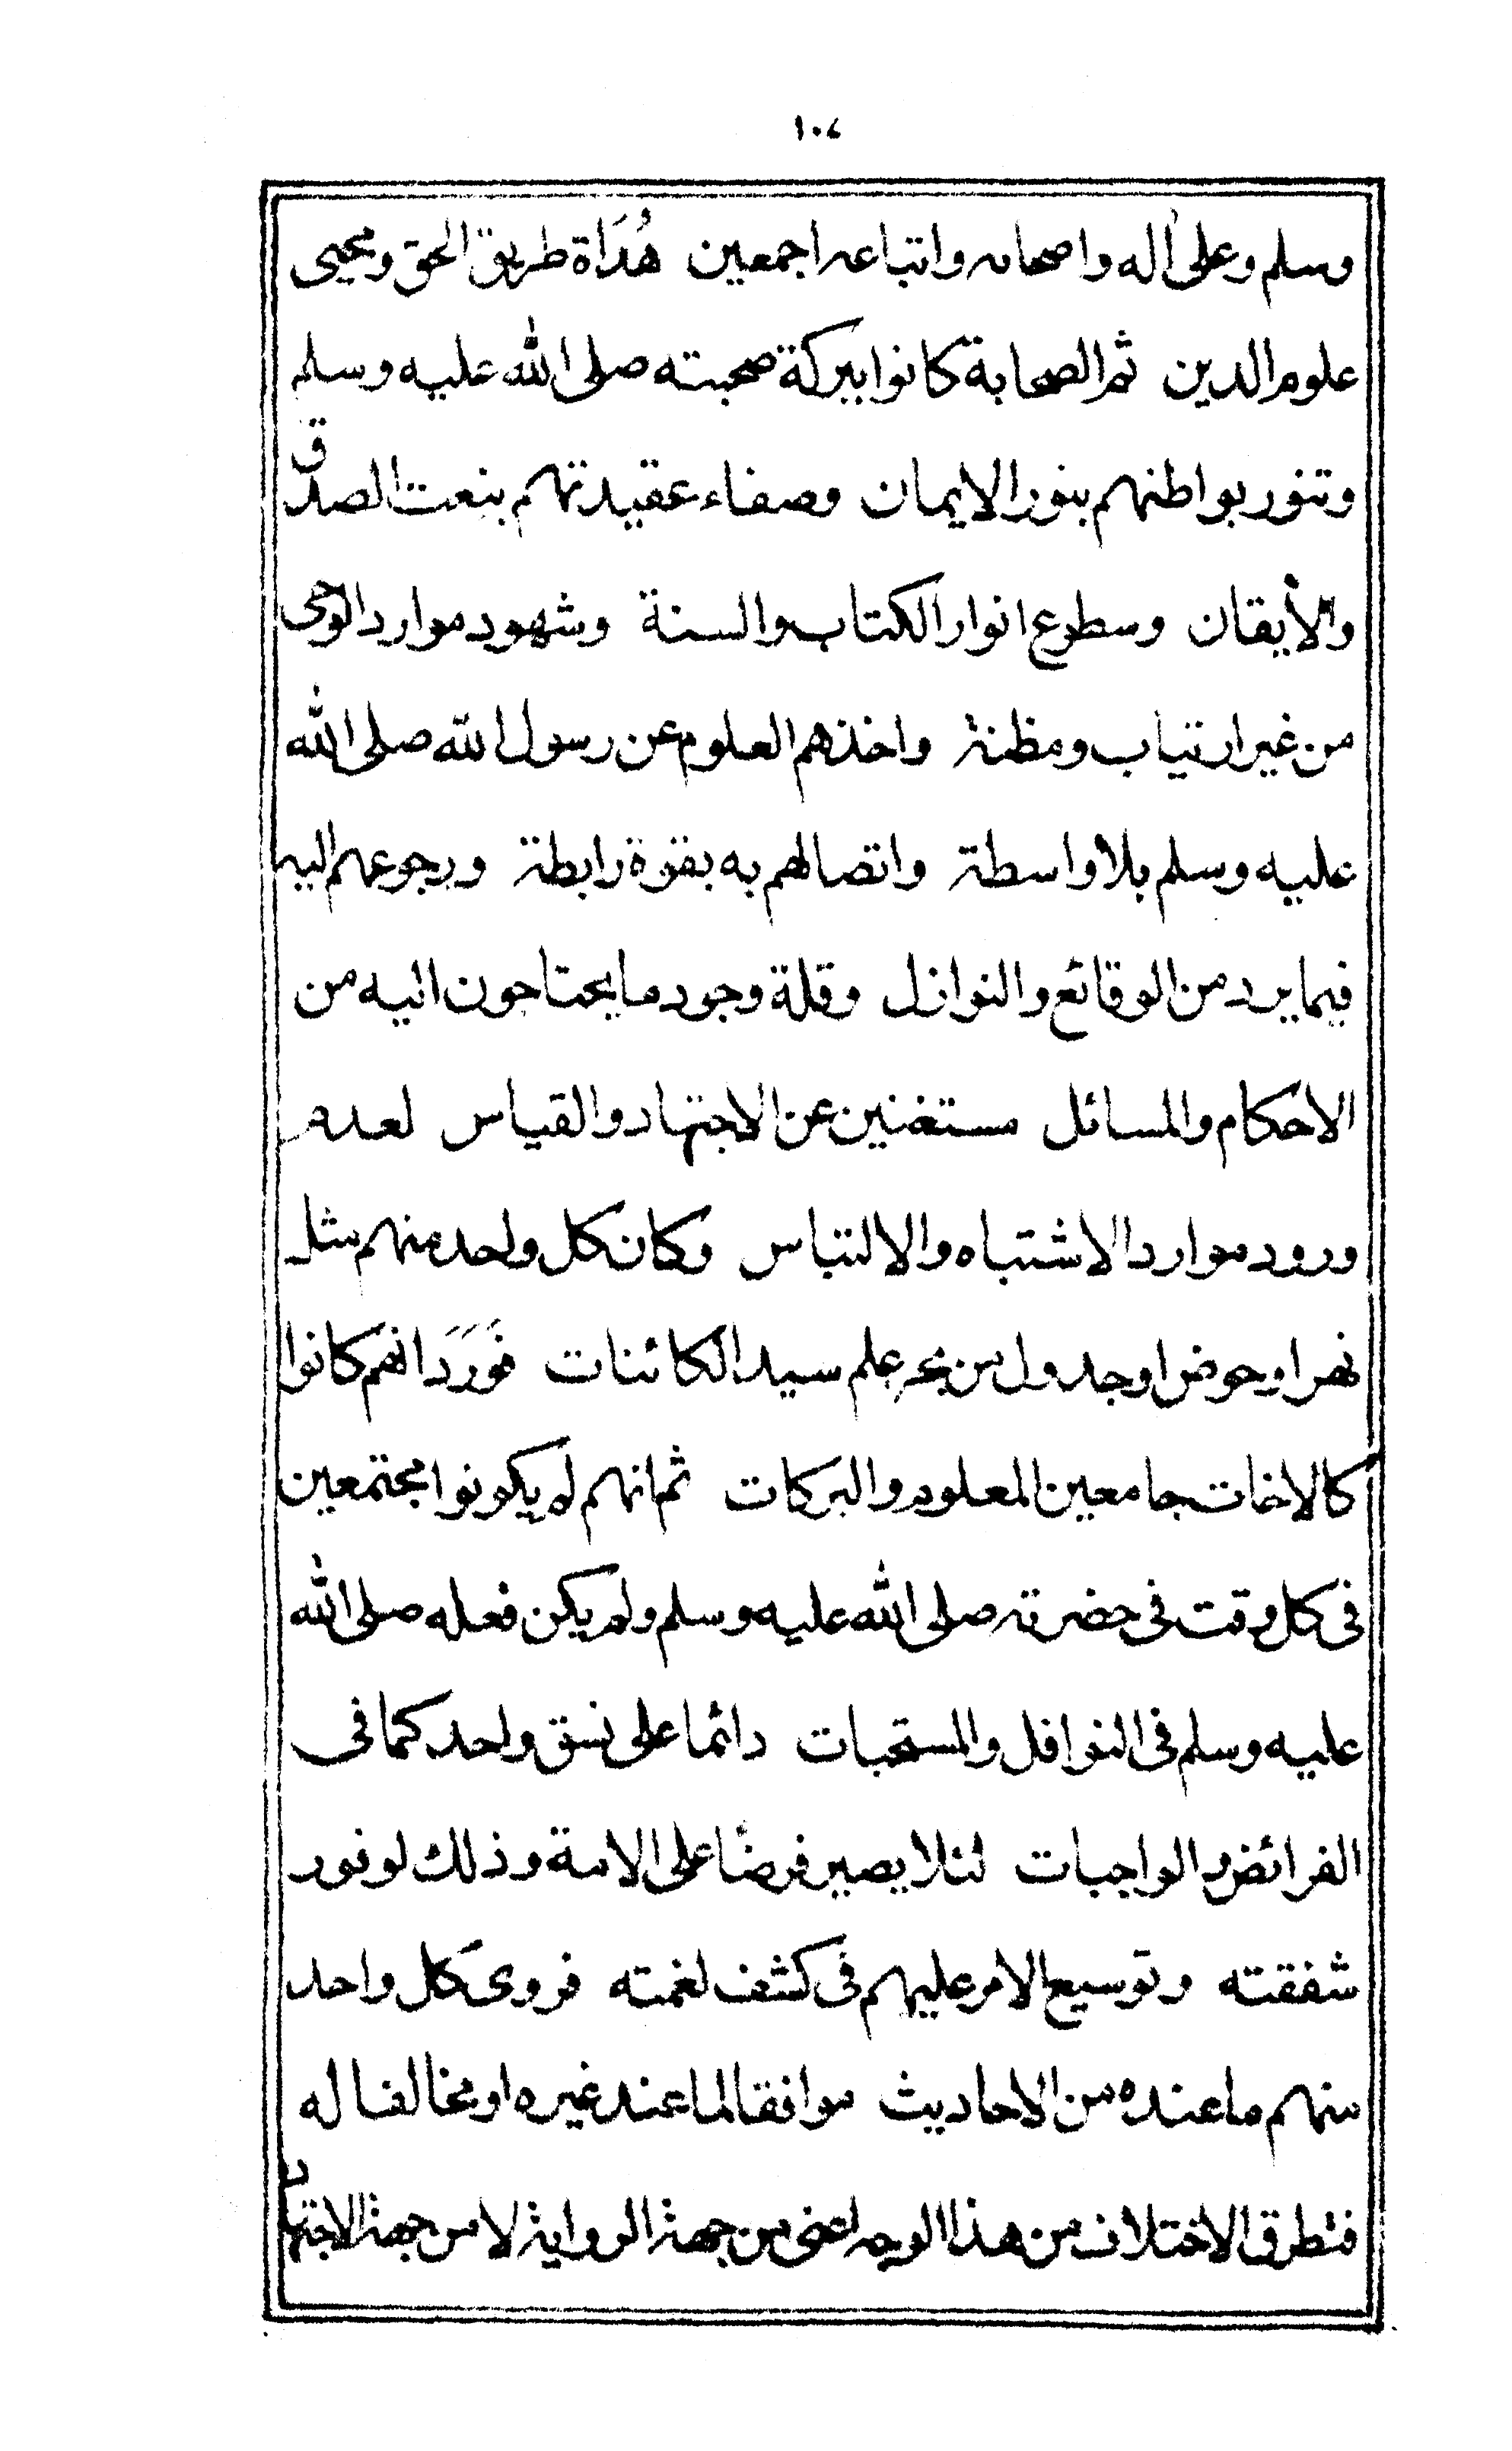 ١٠٤
وسلم وعلى اله واصحابه واتباعه اجمعين هُدَاة طريق الحق ومحيى
علوم الدين ثم الصحابة كانوا ببركة صحبته صلى الله عليه وسلم
وتنور بواطنهم بنور الايمان وصفاء عقيدتهم بنعت الصدق
والأيقان وسطوع انوار الكتاب والسنة وشهود موارد الوحى
من غير ارتياب ومظنة واخذهم العلوم عن رسول الله صلى الله
عليه وسلم بلا واسطة واتصالهم به بقوة رابطة ورجوعهم اليه
فيما يرد من الوقائع والنوازل وقلة وجود ما يحتاجون اليه من
الاحكام والمسائل مستغنين عن الاجتهاد والقياس لعدم
ورود موارد الاشتباه والالتباس وكان كل واحد منهم مثل
نهر او حوض او جدول من بحر علم سيد الكائنات فَوَرَدَ انهم كانوا
كالاخات جامعين للعلوم والبركات ثم انهم لم يكونوا مجتمعين
فى كل وقت فى حضرته صلى الله عليه وسلم ولم يكن فعله صلى الله
عليه وسلم فى النوافل والمستحبات دائما على نسق واحد كما فى
الفرائض والواجبات لئلا يصير فرضًا على الامة وذلك لوفور
شفقته وتوسيع الامر عليهم فى كشف لغمته فروى كل واحد
منهم ما عنده من الاحاديث موافقا لما عند غيره او مخالفا له
فتطرق الاختلاف من هذا الوجه اعنى من جهة الرواية لا من جهة الاجتهاد